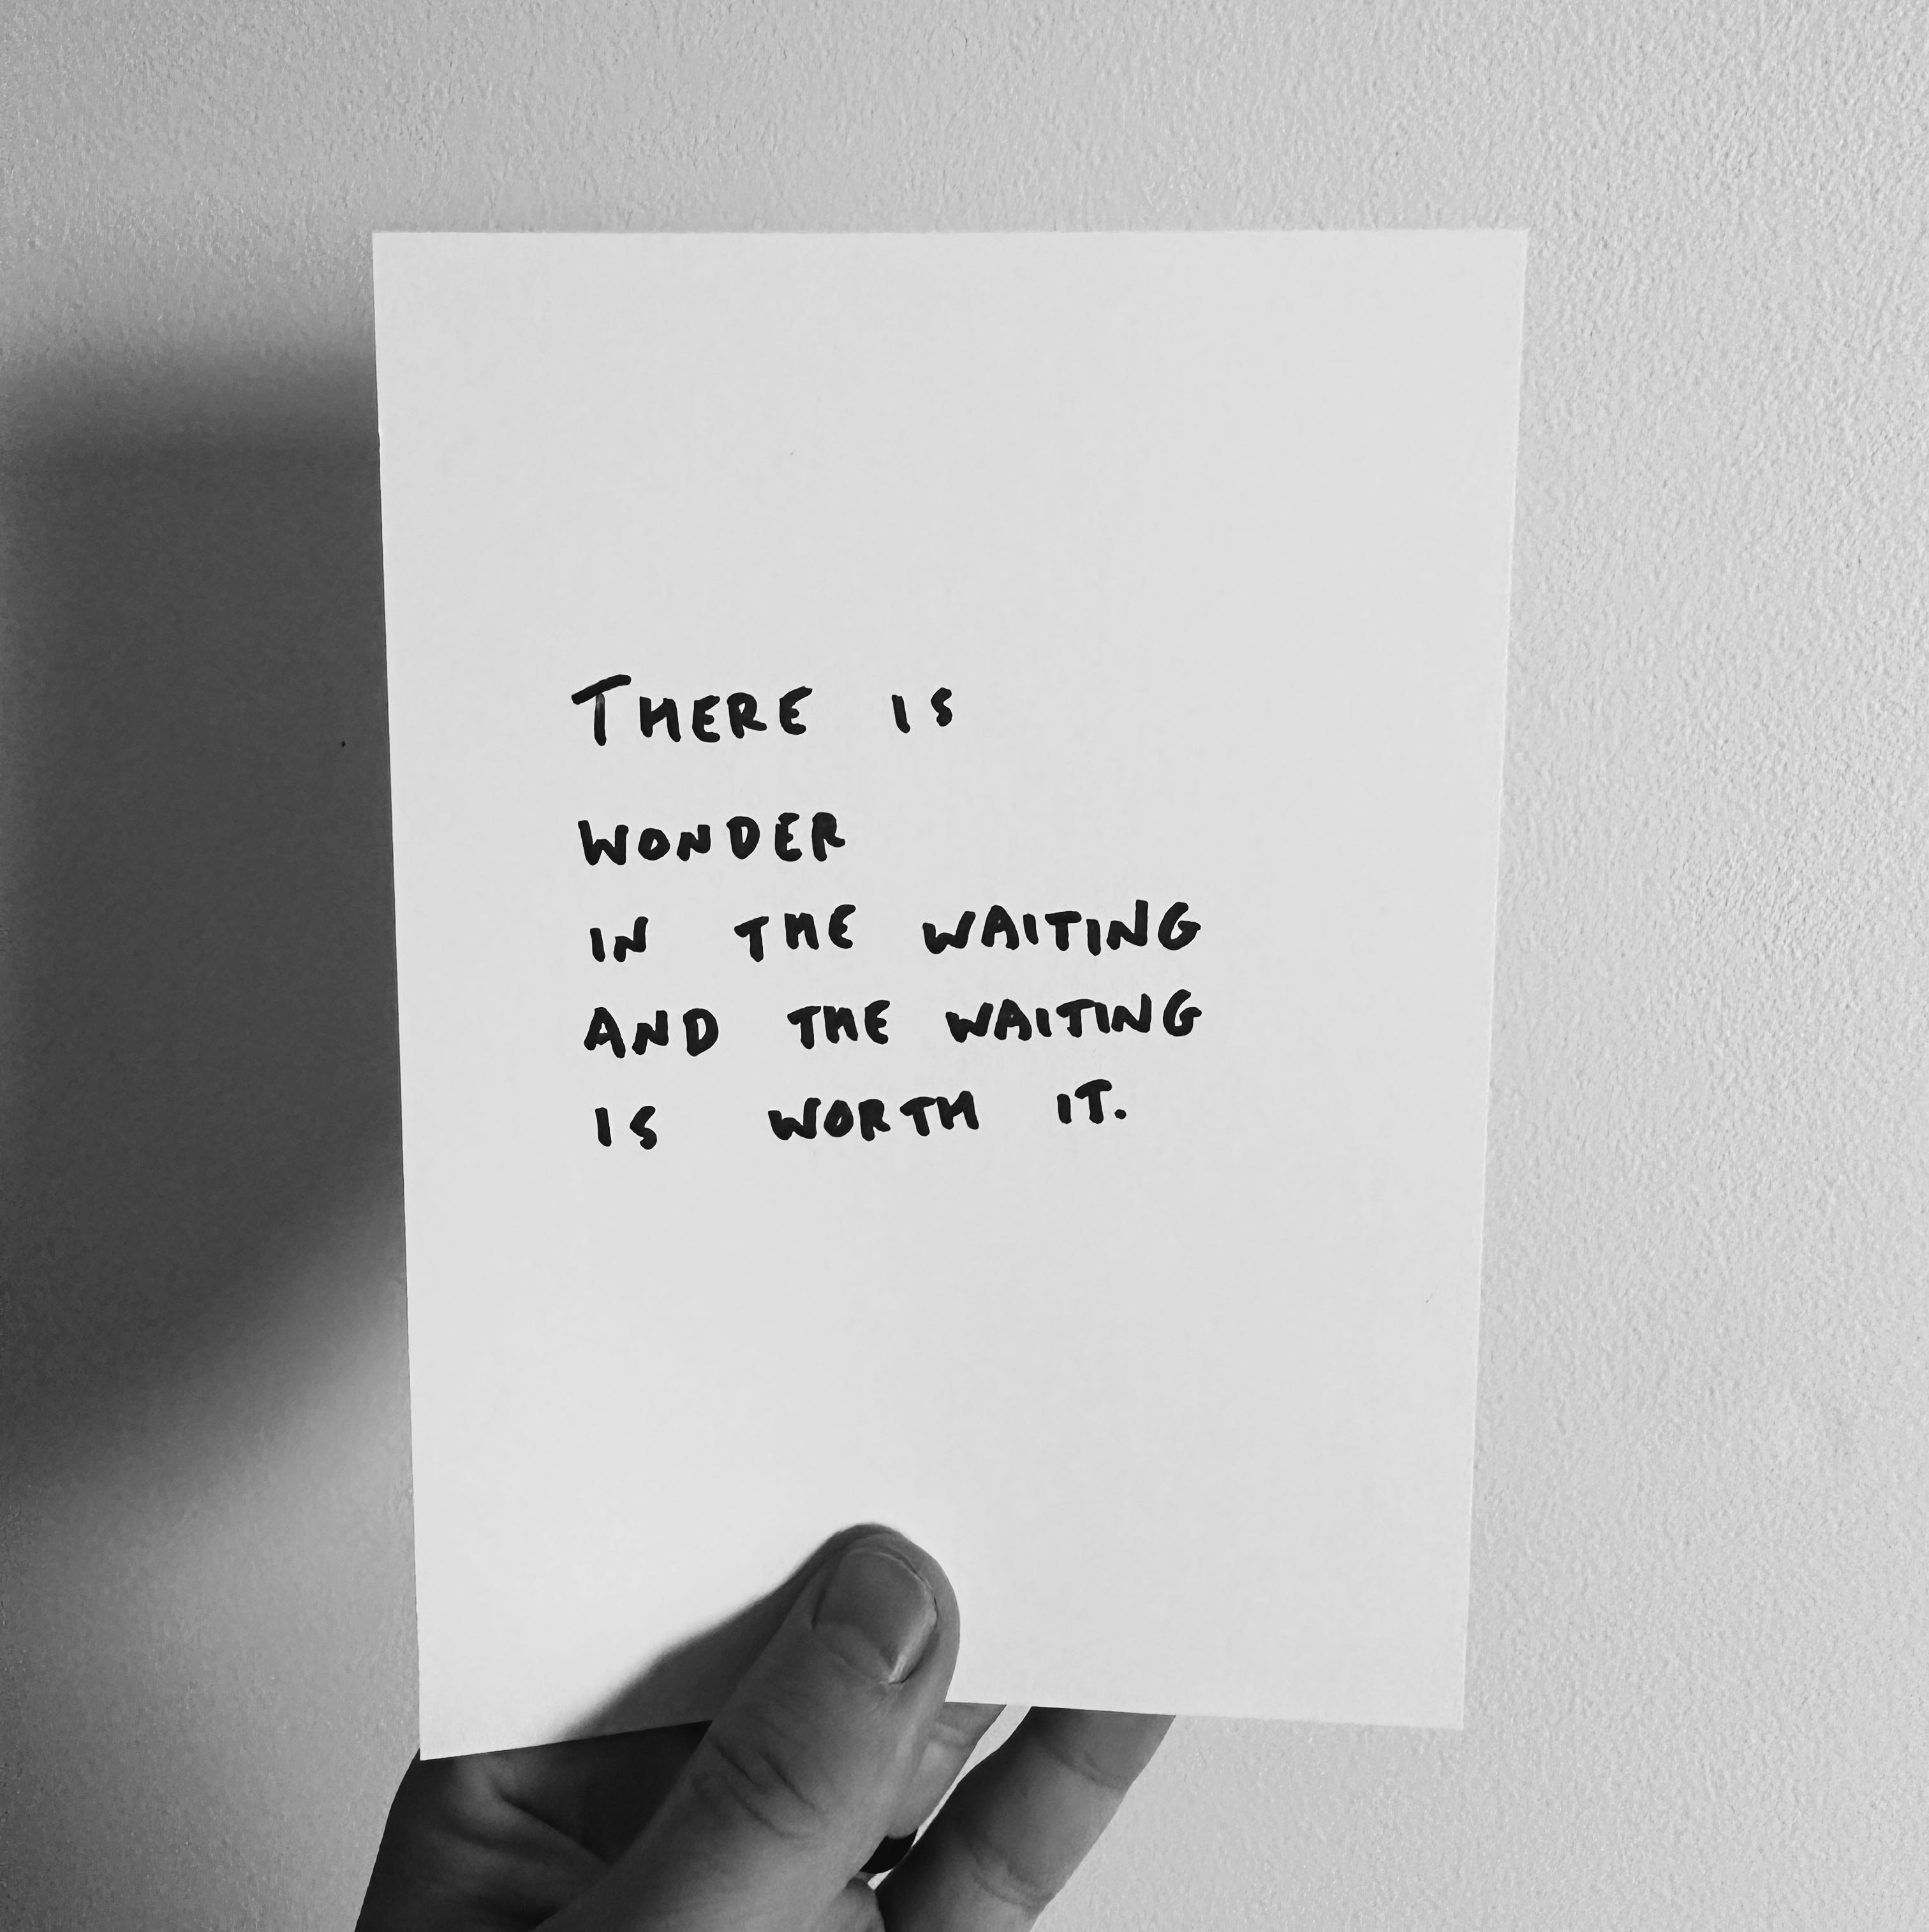 THERE IS
WONDER
IN THE WAITING
AND THE WAITING
IS WORTH IT.